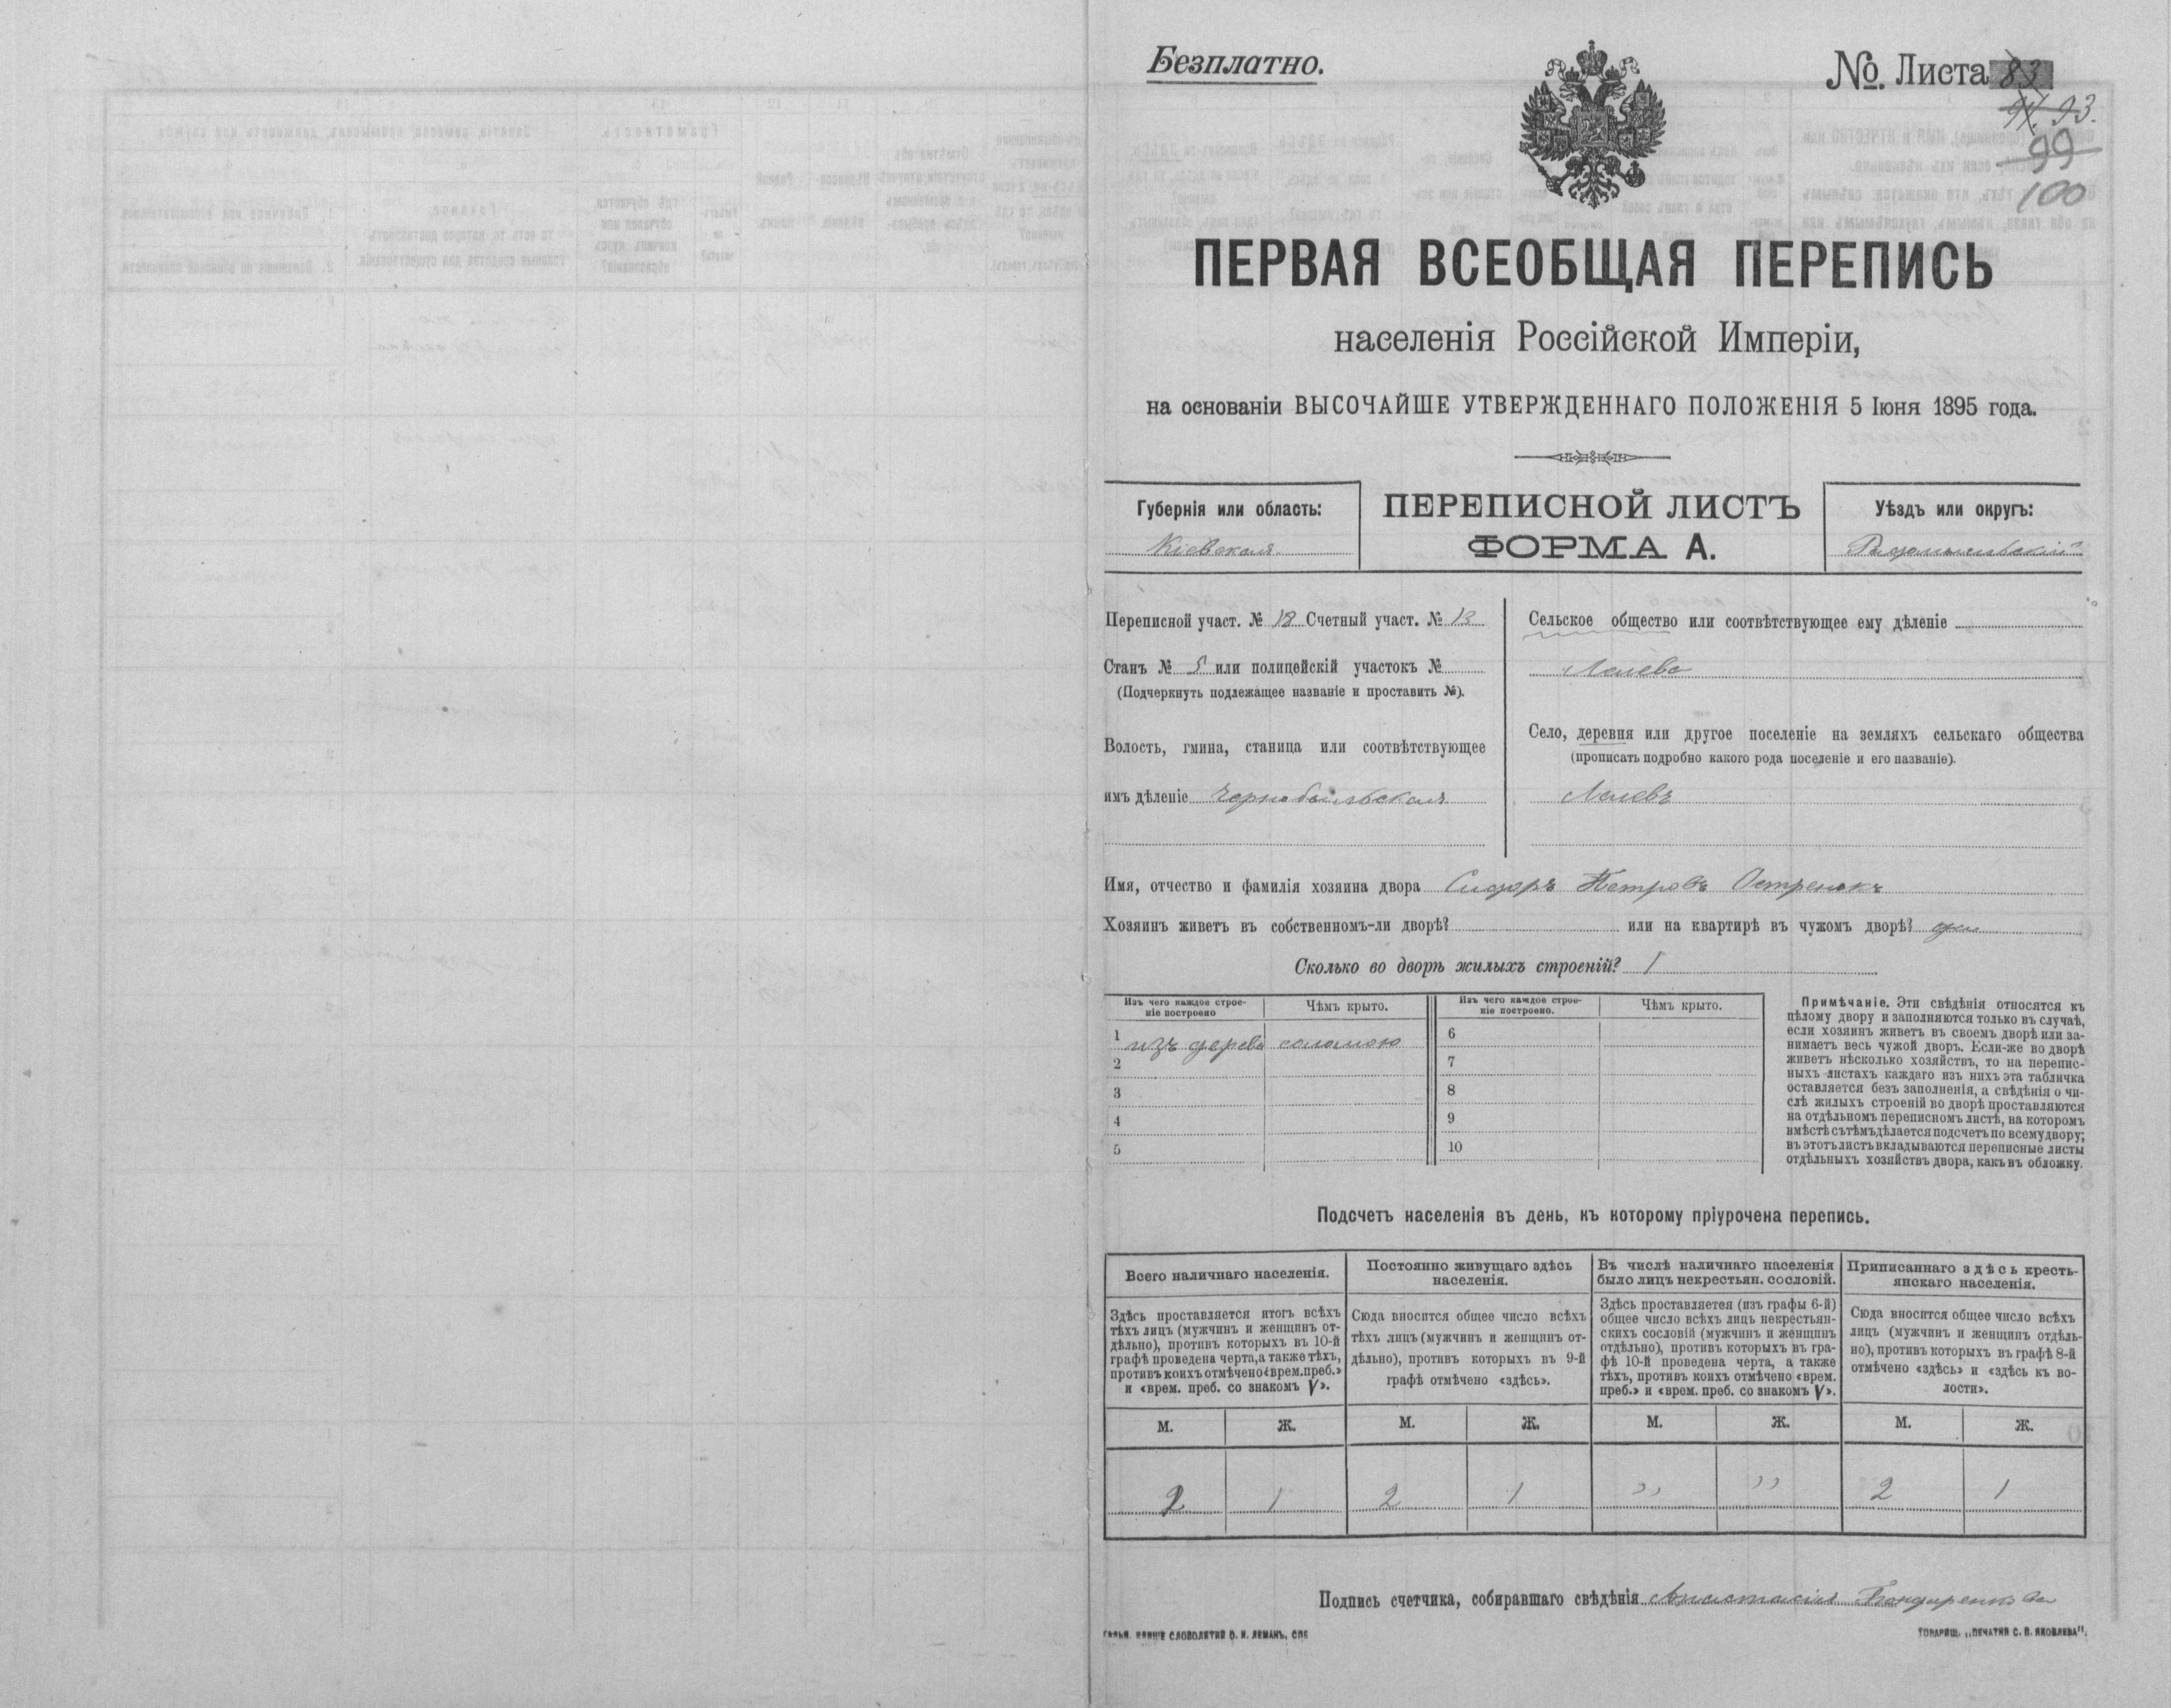 Безплатно.
№ Листа 83
94. 93.
99
100
ПЕРВАЯ ВСЕОБЩАЯ ПЕРЕПИСЬ
населенія Россійской Имперіи,
на основаніи ВЫСОЧАЙШЕ УТВЕРЖДЕННАГО ПОЛОЖЕНІЯ 5 Іюня 1895 года.
Губернія или область:
Кіевская
ПЕРЕПИСНОЙ ЛИСТЪ
ФОРМА А.
Уѣздъ или округъ:
Радомысльскій
Переписной участ. № 18 Счетный участ. № 13
Станъ № 5 или полицейскій участокъ №
(Подчеркнуть подлежащее названіе и проставить №).
Волость, гмина, станица или соотвѣтствующее
имъ дѣленіе Чернобыльская
Сельское общество или соотвѣтствующее ему дѣленіе
Лелевъ
Село, деревня или другое поселеніе на земляхъ сельскаго общества
(прописать подробно какого рода поселеніе и его названіе).
Лелевъ
Имя, отчество и фамилія хозяина двора Сидоръ Петровъ
Хозяинъ живетъ въ собственномъ-ли дворѣ? или на квартирѣ въ чужомъ дворѣ?
Сколько во дворѣ жилыхъ строеній? 1
Изъ чего каждое строе-
ніе построено
Чѣмъ крыто.
Изъ чего каждое строе-
ніе построено.
Чѣмъ крыто.
1 изъ дерева соломою
2
3
4
5
6
7
8
9
10
Примѣчаніе. Эти свѣдѣнія относятся къ
цѣлому двору и заполняются только въ случаѣ,
если хозяинъ живетъ въ своемъ дворѣ или за-
нимаетъ весь чужой дворъ. Если-же во дворѣ
живетъ нѣсколько хозяйствъ, то на перепис-
ныхъ листахъ каждаго изъ нихъ эта табличка
оставляется безъ заполненія, а свѣдѣнія о чи-
слѣ жилыхъ строеній во дворѣ проставляются
на отдѣльномъ переписномъ листѣ, на которомъ
вмѣстѣ съ тѣмъ дѣлается подсчетъ по всему двору;
въ этотъ листъ вкладываются переписные листы
отдѣльныхъ хозяйствъ двора, какъ въ обложку.
Подсчетъ населенія въ день, къ которому пріурочена перепись.
Всего наличнаго населенія.
Здѣсь проставляется итогъ всѣхъ
тѣхъ лицъ (мужчинъ и женщинъ от-
дѣльно), противъ которыхъ въ 10-й
графѣ проведена черта, а также тѣхъ,
противъ коихъ отмѣчено «врем. преб.»
и «врем. преб. со знакомъ V».
Постоянно живущаго здѣсь
населенія.
Сюда вносится общее число всѣхъ
тѣхъ лицъ (мужчинъ и женщинъ от-
дѣльно), противъ которыхъ въ 9-й
графѣ отмѣчено «здѣсь».
Въ числѣ наличнаго населенія
было лицъ некрестьян. сословій.
Здѣсь проставляется (изъ графы 6-й)
общее число всѣхъ лицъ некрестьян-
скихъ сословій (мужчинъ и женщинъ
отдѣльно), противъ которыхъ въ гра-
фѣ 10-й проведена черта, а также
тѣхъ, противъ коихъ отмѣчено «врем.
преб.» и «врем. преб. со знакомъ V».
Приписаннаго здѣсь кресть-
янскаго населенія.
Сюда вносится общее число всѣхъ
лицъ (мужчинъ и женщинъ отдѣль-
но), противъ которыхъ въ графѣ 8-й
отмѣчено «здѣсь» и «здѣсь къ во-
лости».
М. Ж. М. Ж. М. Ж. М. Ж.
2 1 2 1 " " 2 1
Подпись счетчика, собиравшаго свѣдѣнія Анастасія
СЛОВОЛИТНИ О. И. ЛЕМАНЪ, СПБ
ТОВАРИЩ. „ПЕЧАТНЯ С. П. ЯКОВЛЕВА".